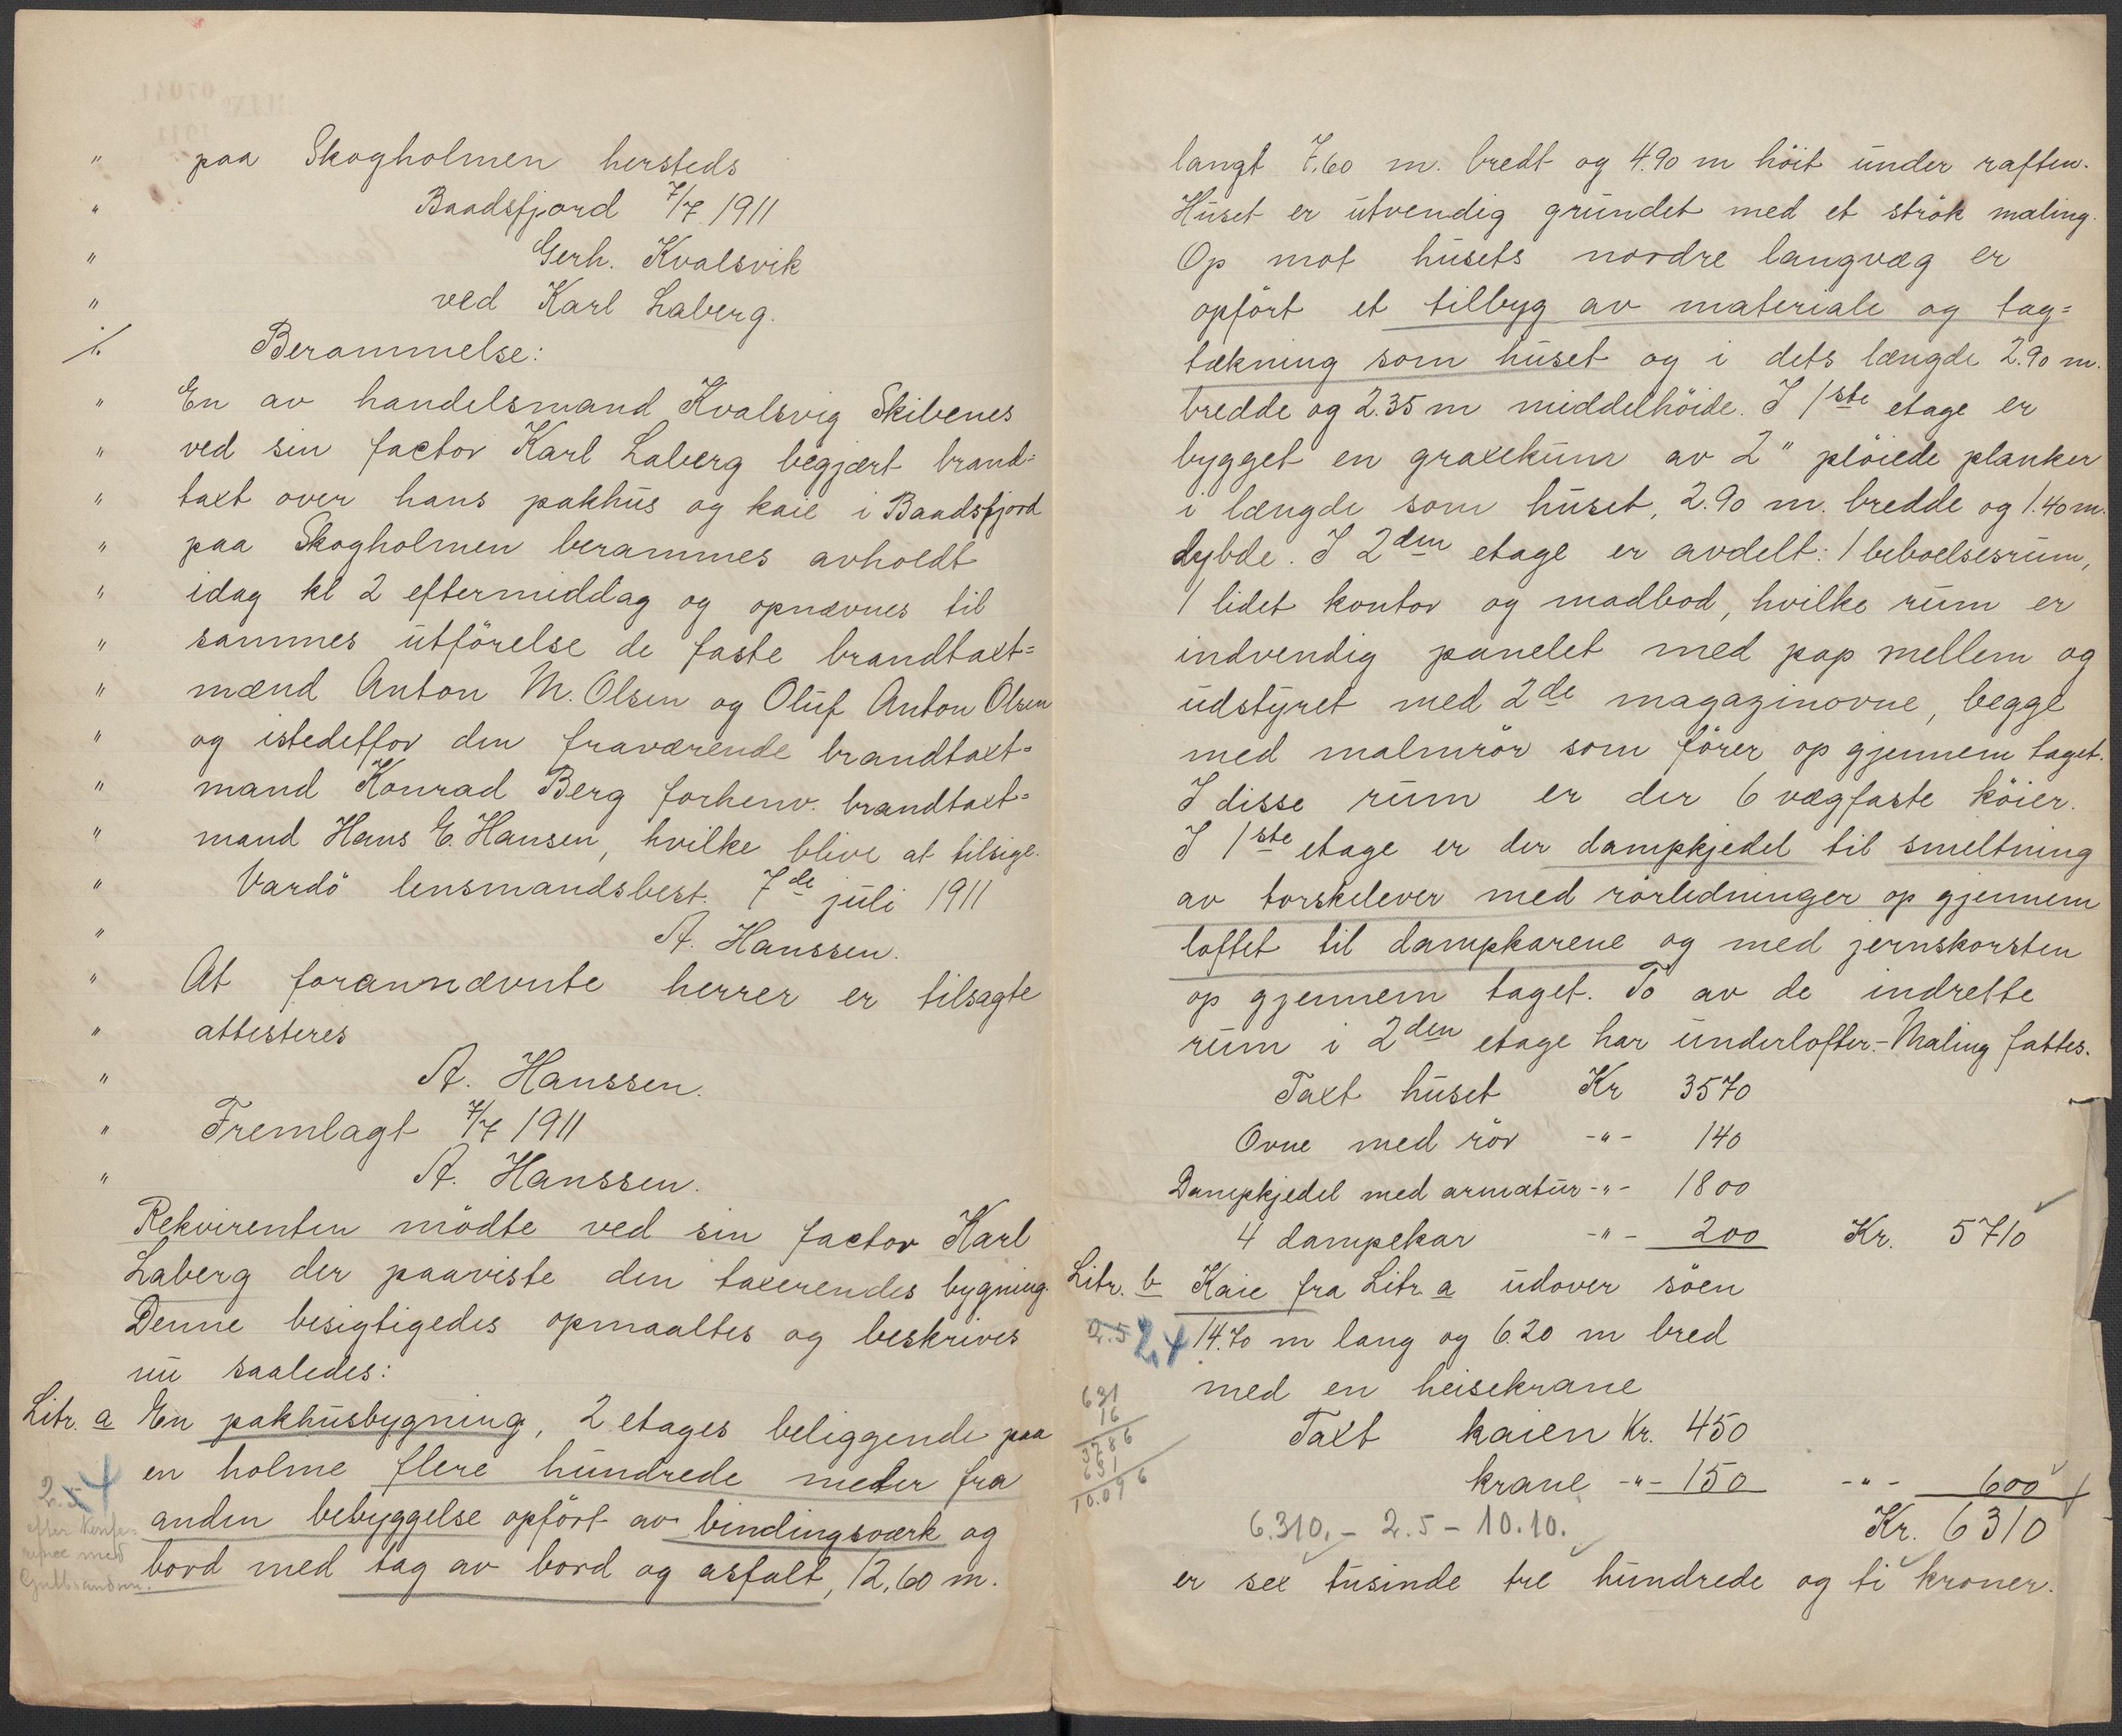 " paa Skogholmen hersteds
" Baadsfjord 7/7 1911
" Gerh. Kvalsvik
" ved Karl Laberg.
·/. Berammelse:
" En av handelsmand Kvalsvig Skibenes
" ved sin factor Karl Laberg begjært brand=
" taxt over hans pakhus og kaie i Baadsfjord
" paa Skogholmen berammes avholdt
" idag kl 2 eftermiddag og opnævnes til
" sammes utförelse de faste brandtaxt=
" mænd Anton M. Olsen og Oluf Anton Olsen
" og istedetfor den fraværende brandtaxt=
" mand Konrad Berg forhenv. brandtaxt=
" mand Hans E. Hansen, hvilke blive at tilsige.
" Vardö lensmandsbest. 7de juli 1911
" A. Hanssen.
" At forannævnte herrer er tilsagte
" attesteres
" A. Hanssen.
" Fremlagt 7/7 1911
" A. Hanssen.
Rekvirenten mödte ved sin factor Karl
Laberg der paaviste den taxerendes bygning.
Denne besigtigedes opmaaltes og beskrives
nu saaledes:
Litr. a En pakhusbygning, 2 etages beliggende paa
en holme flere hundrede meter fra
2.5 4
anden bebyggelse opfört av bindingsværk og
efter Konfe=
rence med
bord med tag av bord og asfalt, 12,60 m.
Gulbrandsen.
langt 7,60 m. bredt og 4.90 m höit under raften.
Huset er utvendig grundet med et strök maling.
Op mot husets nordre langvæg er
opfört et tilbyg av materiale og tag=
tækning som huset og i dets længde 2.90 m.
bredde og 2.35 m middelhöide. I 1ste etage er
bygget en graxekum av 2" plöiede planker
i længde som huset, 2.90 m. bredde og 1.40 m.
dybde. I 2den etage er avdelt: 1 beboelsesrum,
1 lidet kontor og madbod, hvilke rum er
indvendig panelet med pap mellem og
udstyret med 2de magazinovne, begge
med malmrör som förer op gjennem taget.
I disse rum er der 6 vægfaste köier.
I 1ste etage er der dampkjedel til smeltning
av torskelever med rörledninger op gjennem
loftet til dampkarene og med jernskorsten
op gjennem taget. To av de indrette
rum i 2den etage har underlofter.- Maling fattes.
Taxt huset Kr 3570
Ovne med rör -"- 140
Dampkjedel med armatur -"- 1800
4 dampekar -"- 200 Kr. 5710
Litr. b Kaie fra Litr. a udover söen
2.5 2,4 14.70 m lang og 6.20 m bred
med en heisekrane
631
16
3786
631
10.096
Taxt kaien Kr. 450
krane -"- 150 -"- 600
6.310.- 2.5 - 10.10. Kr. 6310
er sex tusinde tre hundrede og ti kroner.